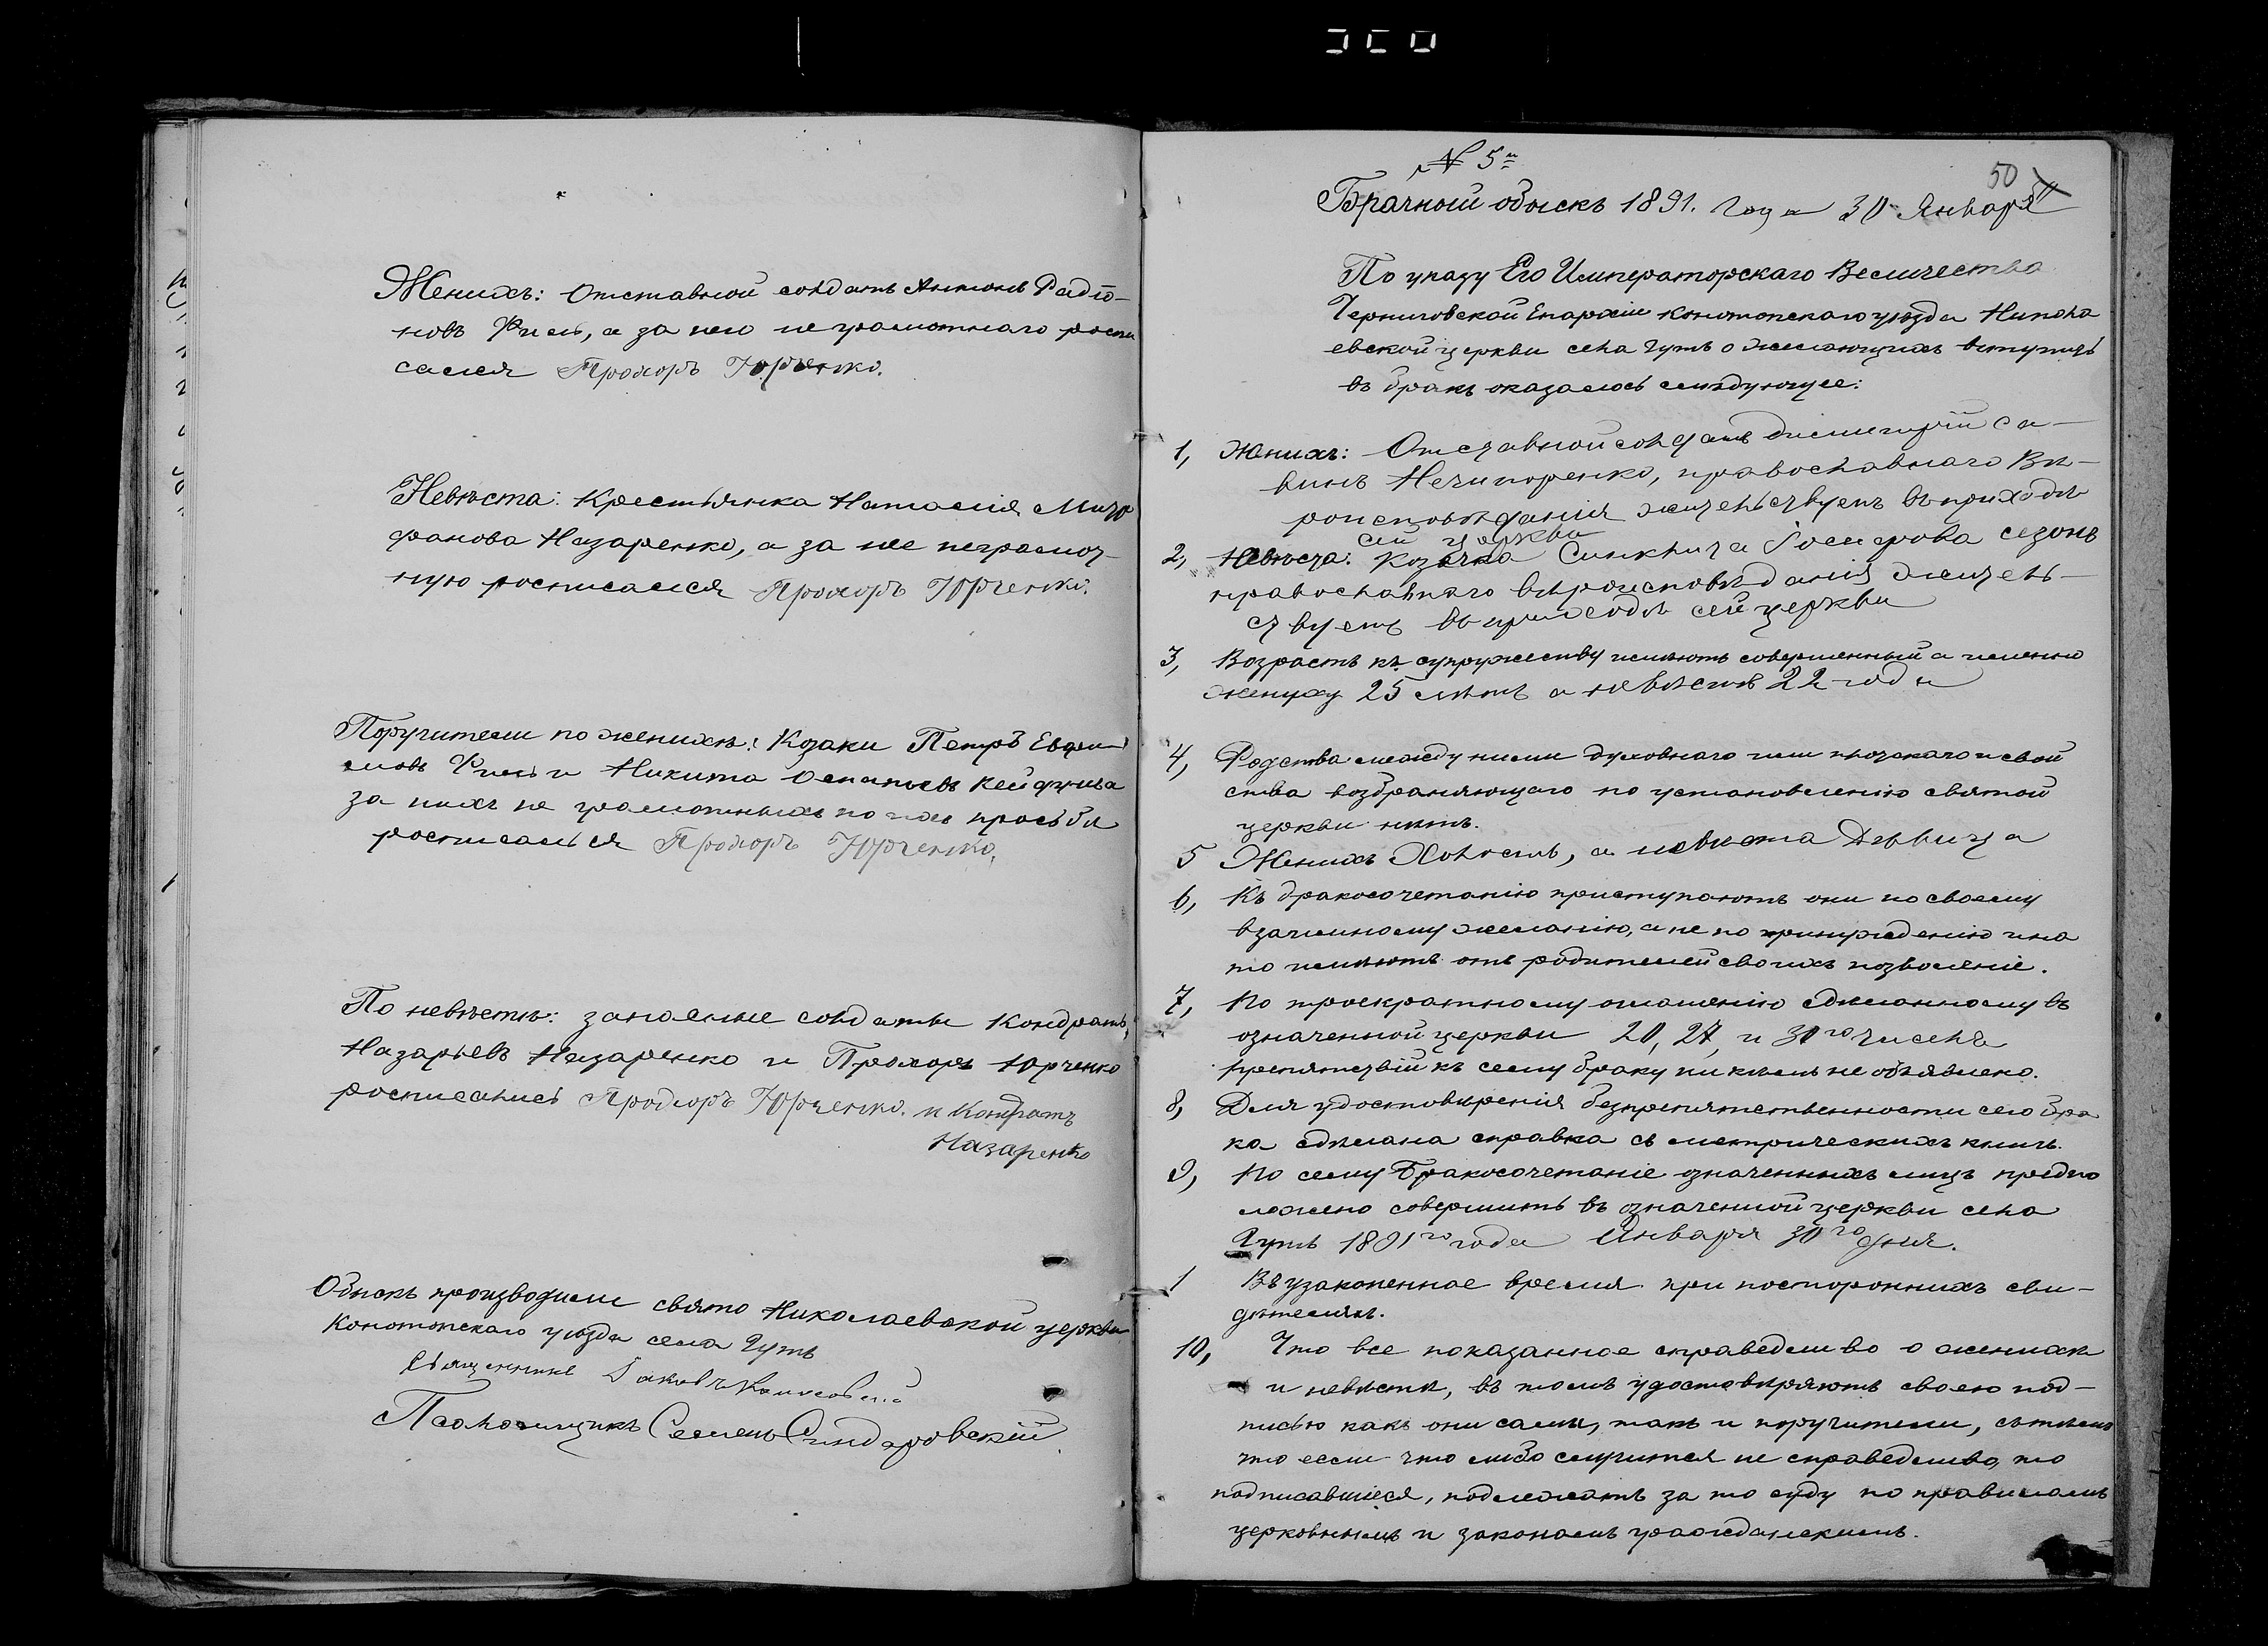 Женихъ: Отставной солдатъ Антонъ Радіо-
новъ Фисъ, а за него неграмотнаго роспи
сался Прохоръ Юрченко.
Невѣста: Крестьянка Наталія Митро
фанова Назаренко, а за нее неграмот-
ную росписался Прохоръ Юрченко.
Поручители по женихѣ: Козаки Петръ Евфи
мовъ Фисъ и Никита
за нихъ не грамотныхъ по ихъ прозьбѣ
росписался Прохоръ Юрченко.
По невѣстѣ: запасные солдаты Кондратъ
Назарьевъ Назаренко и Прохоръ Юрченко
росписались Прохоръ Юрченко. и Кондратъ
Назаренко
Обыскъ производили свято Николаевской церкви
Конотопскаго уѣзда села Гутъ
Священникъ Іаковъ
Псаломщикъ Семенъ
№ 5й
50
Брачный обыскъ 1891. года 30 Января
По указу Его Императорскаго Величества
Черниговской Епархіи Конотопскаго уѣзда Никола
евской церкви села Гутъ о желающихъ вступить
въ бракъ оказалось слѣдующее:
1, Женихъ: Отставной солдатъ Димитрій Са-
винъ Нечипоренко, православнаго Вѣ-
роисповѣданія жительствуетъ въ приходѣ
сей церкви
2, Невѣста: Козачка Синклита Іосифова
православнаго вѣроисповѣданія житель-
ствуетъ въ приходѣ сей церкви
3, Возрастъ къ супружеству имѣютъ совершенный а именно
жениху 25 лѣтъ а невѣстѣ 22 года
4, Родства между ними духовнаго или плотскаго и свой
ства возбраняющаго по установленію святой
церкви нѣтъ.
5 Женихъ Холостъ, а невѣста Дѣвица
6, Къ бракосочетанію приступаютъ они по своему
взаимному желанію, а не по принужденію и на
то имѣютъ отъ родителей своихъ позволеніе.
7, По троекратному оглашенію сдѣланному въ
означенной церкви 20, 27, и 30го числа
препятствій къ сему браку никѣмъ не объявлено.
8, Для удостовѣренія безпрепятственности сего бра
ка сдѣлана справка съ метрическихъ книгъ.
9, По сему Бракосочетаніе означенныхъ лицъ предпо
ложено совершить въ означенной церкви села
Гутъ 1891го года Января 30го дня.
1 Въ узаконенное время при постороннихъ сви-
дѣтеляхъ.
10, Что все показанное справедливо о женихѣ
и невѣстѣ, въ томъ удостовѣряютъ своею под-
писью какъ они сами, такъ и поручители, съ тѣмъ
что если что либо случится не справедливо, то
подписавшіеся, подлежатъ за то суду по правиламъ
церковнымъ и законамъ гражданскимъ.